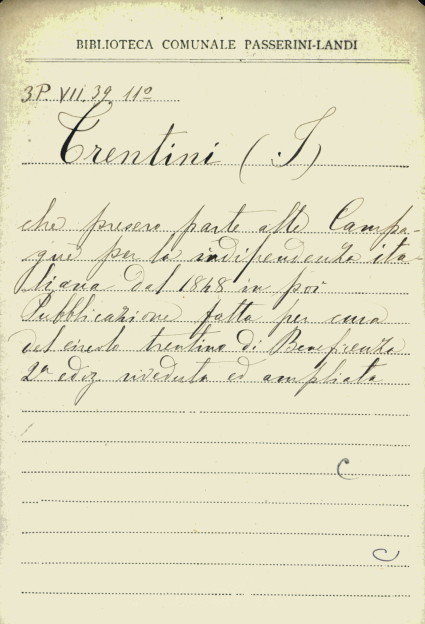 BIBLIOTECA COMUNALE PASSERINI-LANDI
3P VII. 39. 11º
Trentini (I)
che presero parte alle Campa-
gne per la indipendenza ita-
liana dal 1848 in poi
Pubblicazione fatta per cura
del circolo trentino di Beneficenza
2ª ediz riveduta ed ampliata
C
C